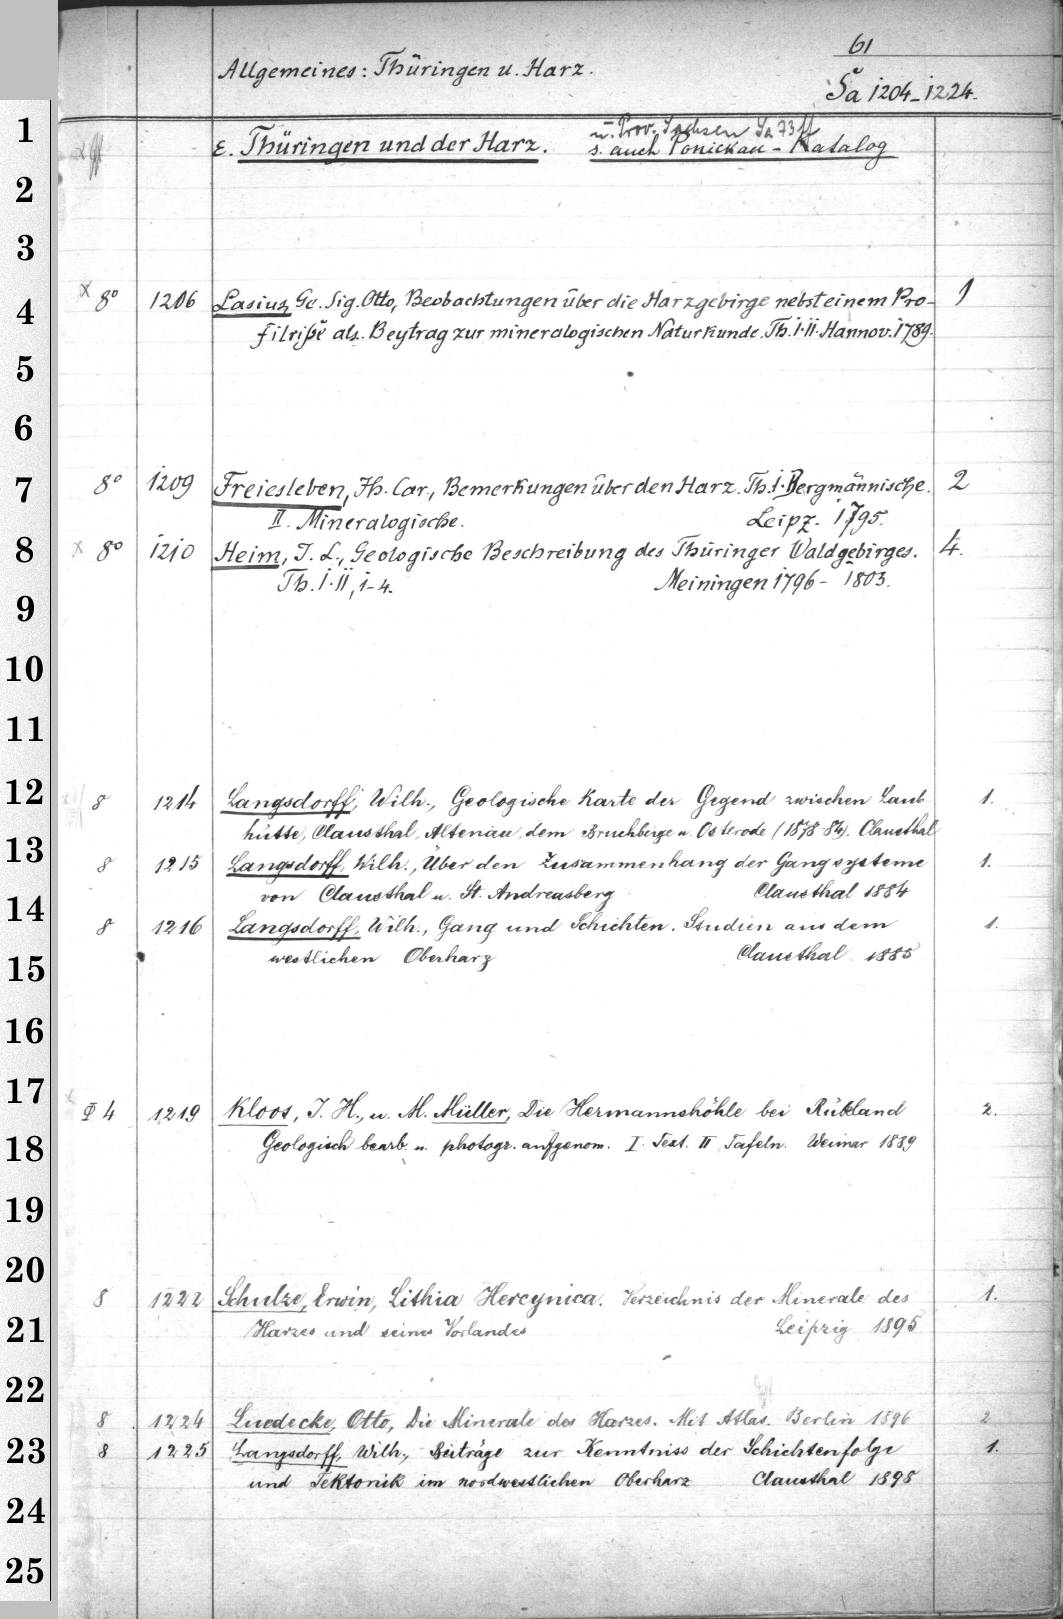 61
Allgemeines: Thüringen u. Harz.
Sa 1204-1224.
u. Prov. Sachsen Sa 73 ff
1
ε. Thüringen und der Harz. s. auch Ponickau-Katalog
2
3
x 8° 1206 Lasius, Ge. Sig. Otto, Beobachtungen über die Harzgebirge nebst einem Pro- 1
4
filriße als. Beytrag zur mineralogischen Naturkunde. Th. I·II. Hannov. 1789.
5
6
7 8° 1209 Freiesleben, Jh. Car., Bemerkungen über den Harz. Th. I. Bergmännische. 2
II. Mineralogische. Leipz. 1795.
8 x 8° 1210 Heim, J. L., Geologische Beschreibung des Thüringer Waldgebirges. 4.
Th. I·II, 1-4. Meiningen 1796- 1803.
9
10
11
12 8 1214 Langsdorff, Wilh., Geologische Karte der Gegend zwischen Laub- 1.
hütte, Clausthal, Altenau, dem Bruchberge u. Osterode (1878-84). Clausthal
13 8 1215 Langsdorff, Wilh., Über den Zusammenhang der Gangsysteme 1.
von Clausthal u. St. Andreasberg Clausthal 1884
14
8 1216 Langsdorff, Wilh., Gang und Schichten. Studien aus dem 1.
westlichen Oberharz Clausthal 1885
15
16
17
Φ 4 1219 Kloos, J. H., u. M. Müller, Die Hermannshöhle bei Rübeland 2.
18 Geologisch bearb. u. photogr. aufgenom. I. Text. II Tafeln. Weimar 1889
19
20
8 1222 Schulze, Erwin, Lithia Hercynica. Verzeichnis der Minerale des 1.
21 Harzes und seines Vorlandes Leipzig 1895
22
8 1224 Luedecke, Otto, Die Minerale des Harzes. Mit Atlas. Berlin 1896 2
23 8 1225 Langsdorff, Wilh., Beiträge zur Kenntniss der Schichtenfolge 1.
und Tektonik im nordwestlichen Oberharz Clausthal 1898
24
25